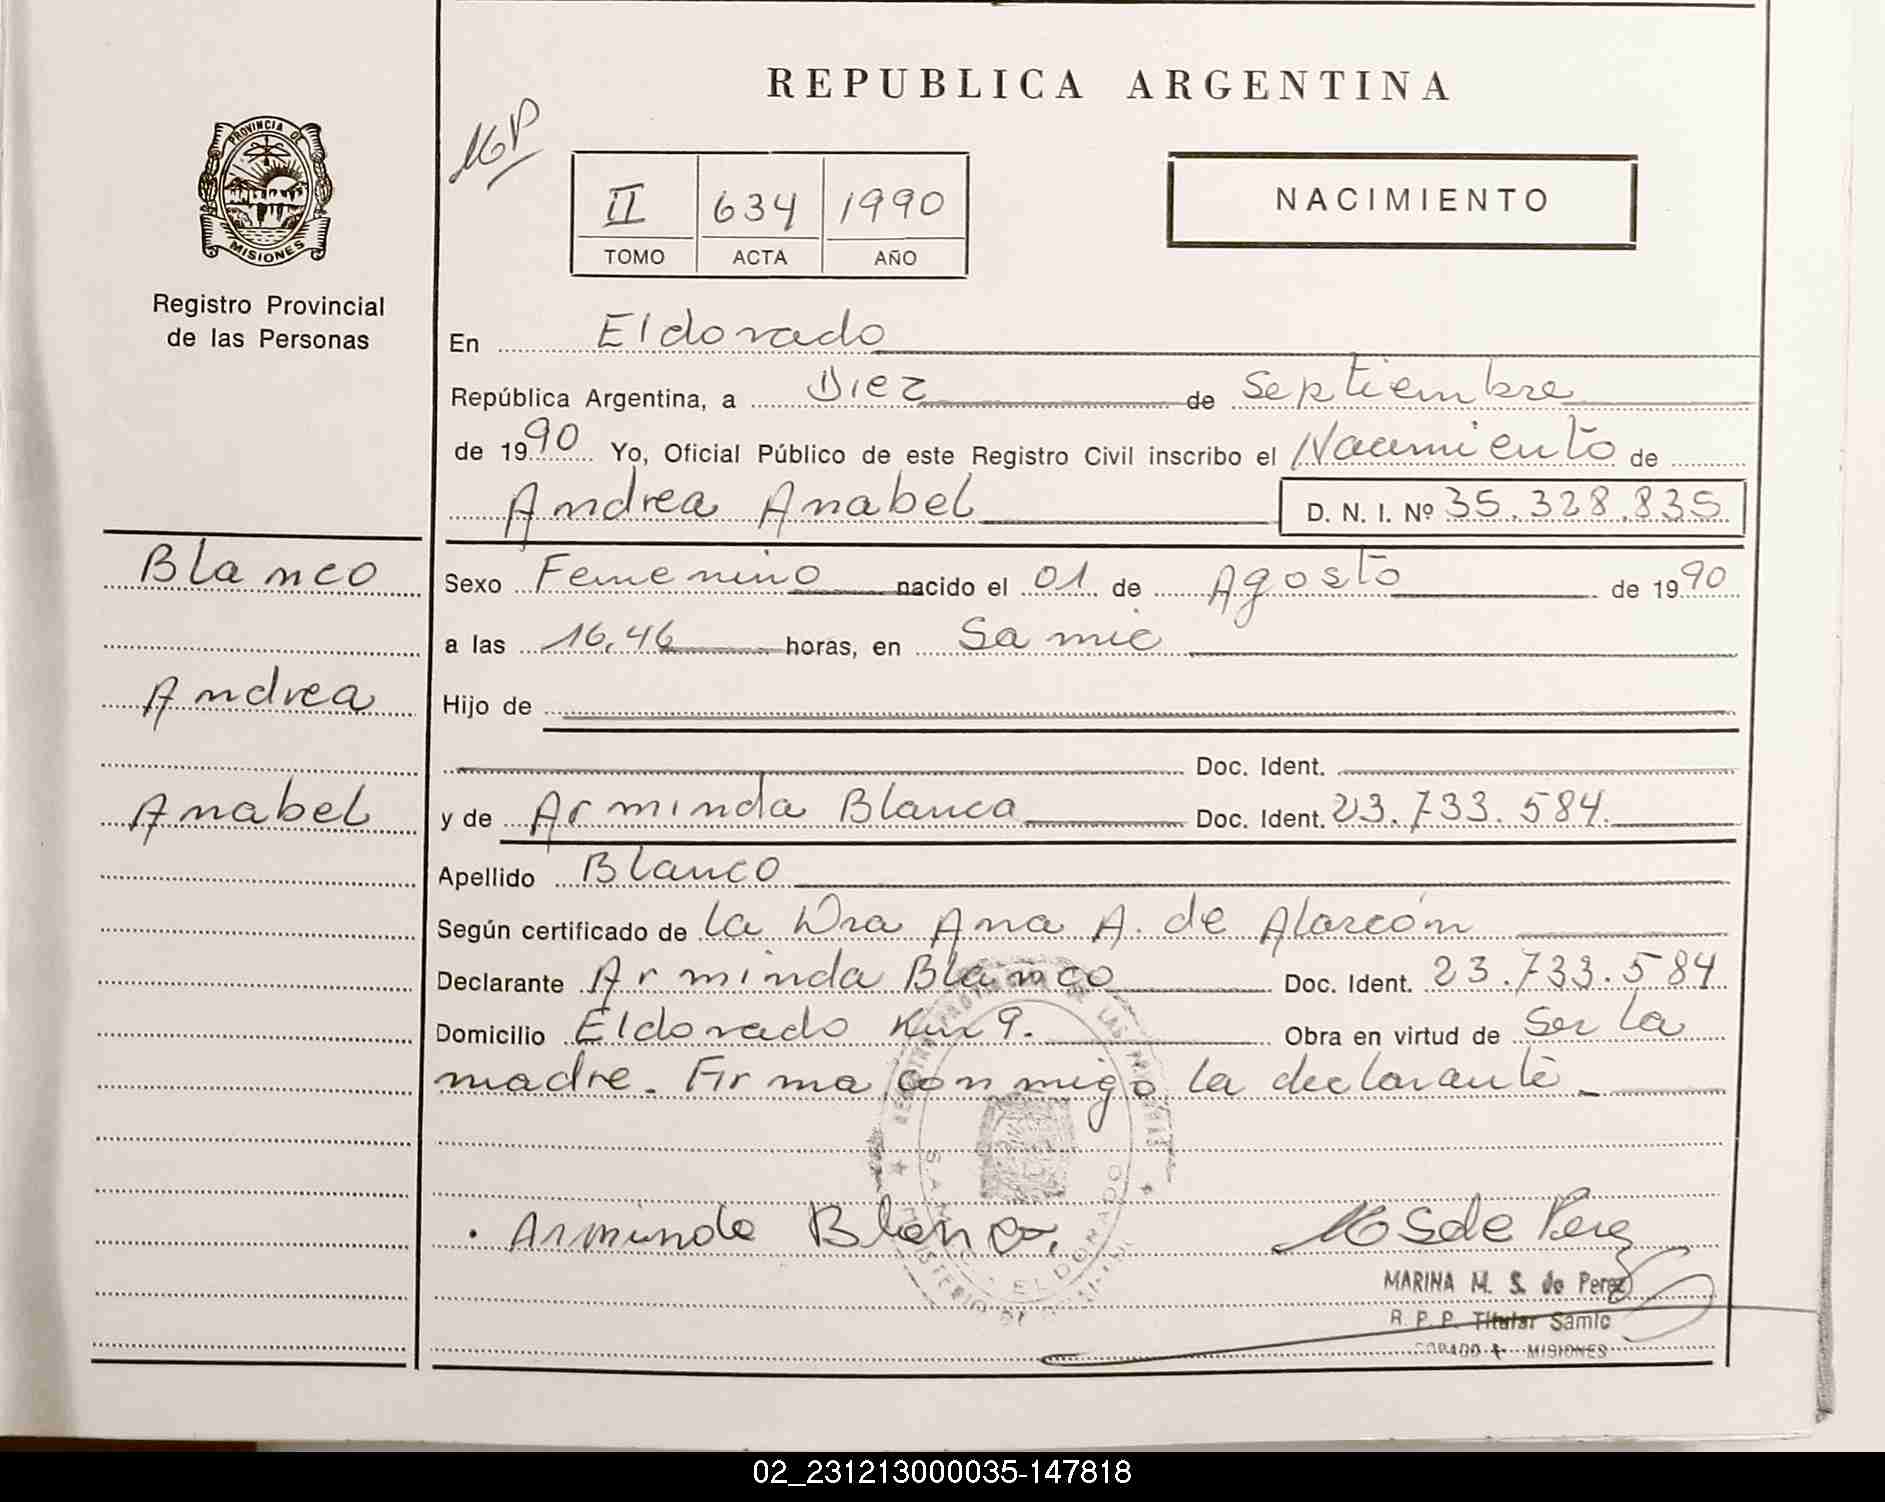 REPUBLICA ARGENTINA
PROVINCIA DE
MISIONES
Registro Provincial
de las Personas
II 634 1990
TOMO ACTA AÑO
NACIMIENTO
En Eldorado
República Argentina, a Diez de Septiembre
de 1990 Yo, Oficial Público de este Registro Civil inscribo el Nacimiento de
Andrea Anabel D. N. I. Nº 35.328.835
Blanco
Andrea
Anabel
Sexo Femenino nacido el 01 de Agosto de 1990
a las 16,46 horas, en Samic
Hijo de
Doc. Ident.
y de Arminda Blanca Doc. Ident. 23.733.584.
Apellido Blanco
Según certificado de la Dra Ana A. de Alarcón
Declarante Arminda Blanco Doc. Ident. 23.733.584
Domicilio Eldorado Km 9. Obra en virtud de Ser la
madre. Firma conmigo la declarante
Arminda Blanco
MS de Perez
MARINA M. S. de Perez
R. P. P. Titular Samic
MISIONES
ELDORADO
02_231213000035-147818